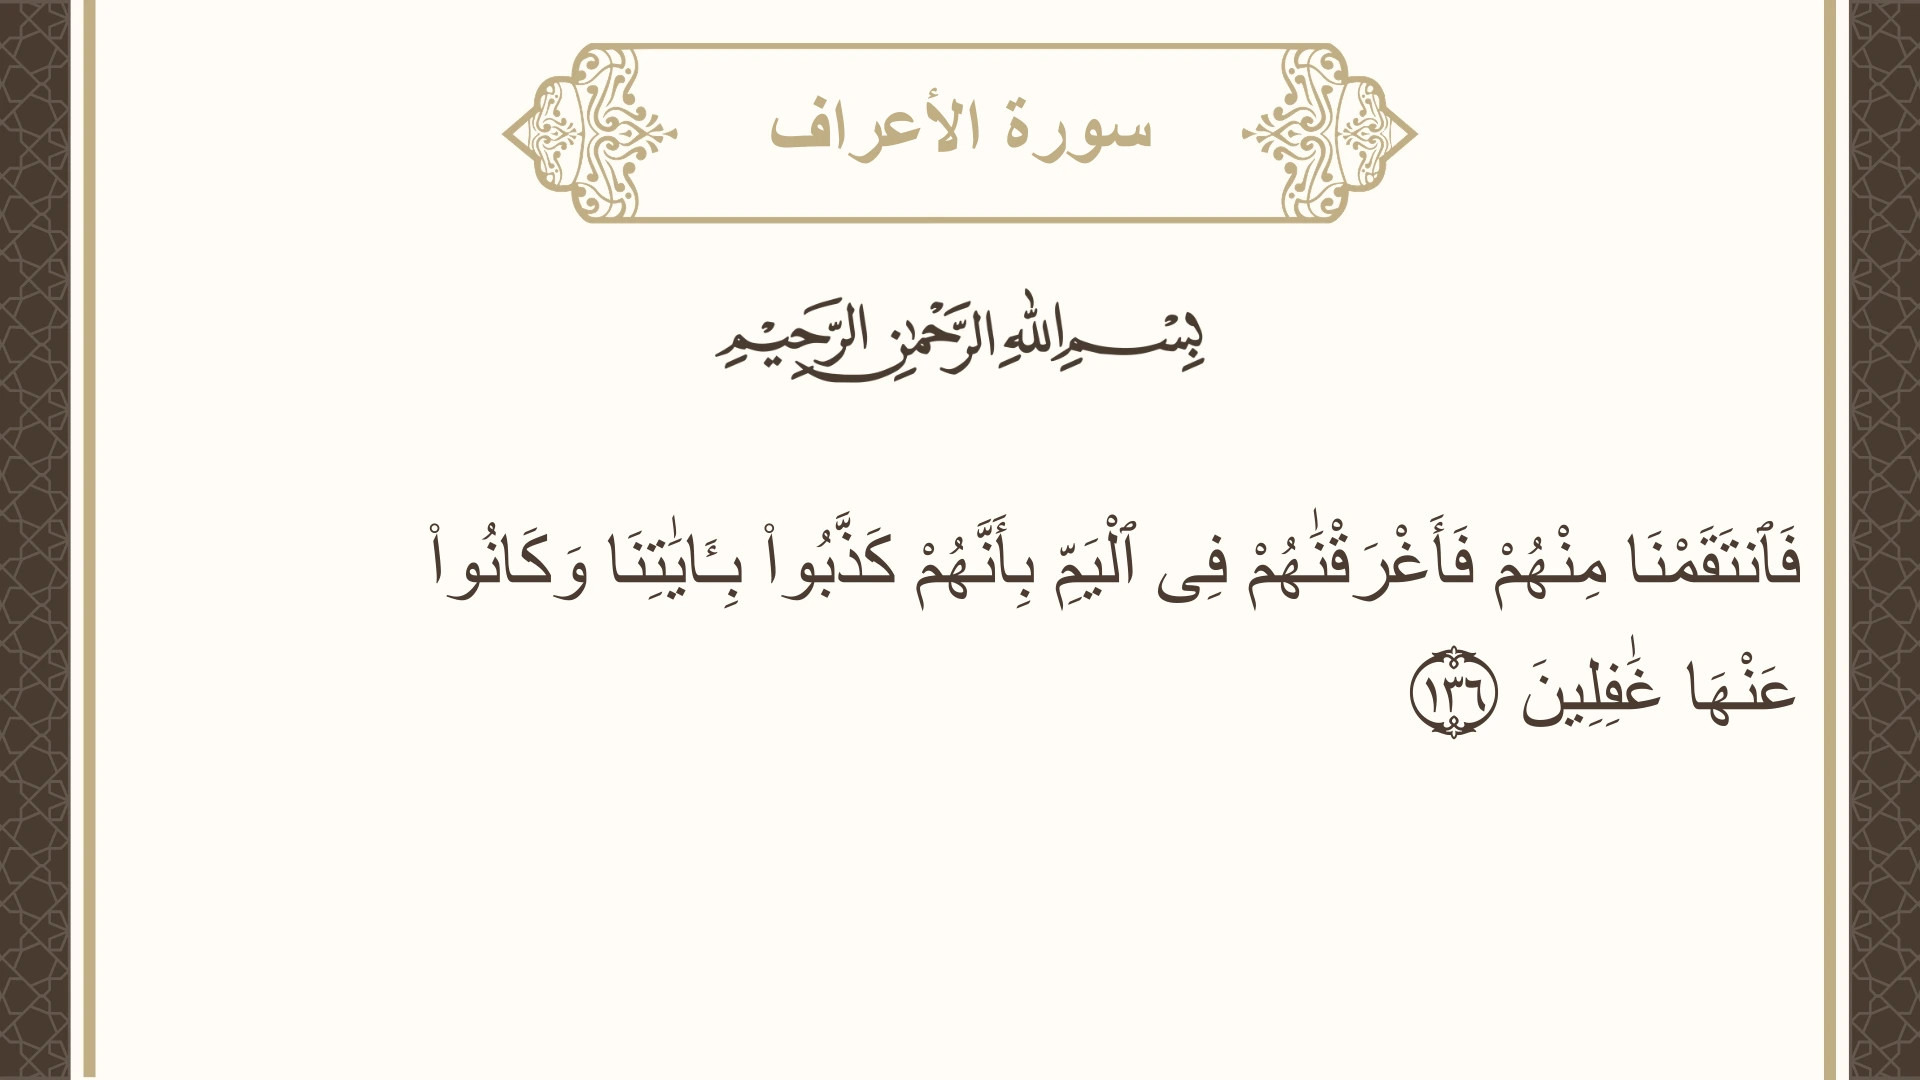 سورة الأعراف
بِسْمِ اللهِ الرَّحْمٰنِ الرَّحِيْمِ
فَٱنتَقَمْنَا مِنْهُمْ فَأَغْرَقْنَٰهُمْ فِى ٱلْيَمِّ بِأَنَّهُمْ كَذَّبُوا۟ بِـَٔايَٰتِنَا وَكَانُوا۟
عَنْهَا غَٰفِلِينَ ١٣٦